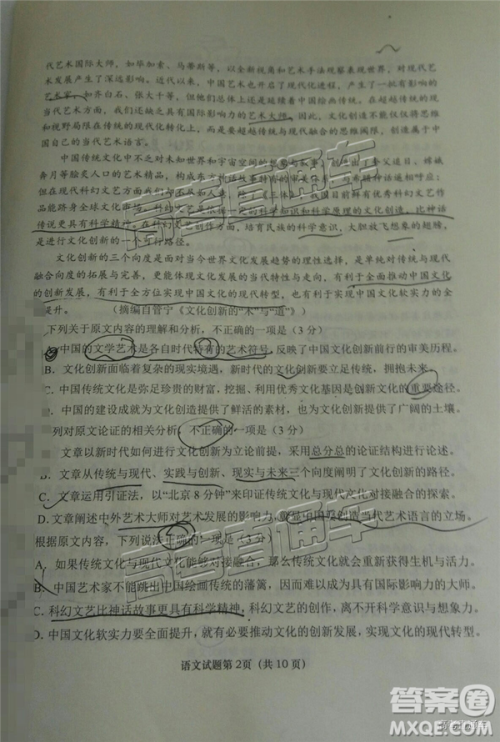 代艺术国际大师，如毕加索、马蒂斯等，以全新视角和艺术手法观察表现世界，对现代艺
术发展产生了深远影响。近代以来，中国艺术也开启现代化进程，产生了一些有影响的
艺术家，如齐白石、张大千等，但他们总体上还是侧重于中国绘画传统。在超越传统的现
当代艺术方面，我们还缺乏具有国际影响力的艺术大师。因此，文化创新不能仅仅将思维
和视野局限在传统的现代化转化，更要着眼于超越传统与现代融合的思维阈限，创造属于中
国自己的当代艺术话语。
中国传统文化中不乏对未知世界和宇宙空间的
奔月等脍炙人口的艺术精品，构成东方民族
但在现代科幻文艺方面
作品能跻身全球文化市场。
传说更具有科学精神。在科幻文艺创作方面，培育民族的科学意识，大胆放飞想象的翅膀，
是进行文化创新的一个可行路径。
文化创新的三个向度是面对当今世界文化发展趋势的理性选择，是单纯对传统与现代
围阈的拓展与完善，更能体现文化发展的当代特性与走向，有利于全面推动中国文化
的创新发展，有利于全方位实现中国文化的现代转型，也有利于实现中国文化软实力的全
面提升。
（摘编自管宁《文化创新的“术”与“道”》）
下列关于原文内容的理解和分析，不正确的一项是（3 分）
中国的文学艺术是各自时代特有的艺术符号，反映了中国文化创新前行的审美历程。
B．文化创新面临着复杂的现实境遇，新时代的文化创新要立足传统，拥抱未来。
C．中国传统文化是弥足珍贵的财富，挖掘、利用优秀文化基因是创新文化的重要途径。
．中国的建设成就为文化创造提供了鲜活的素材，也为文化创新提供了广阔的土壤。
列对原文论证的相关分析，不正确的一项是（3 分）
文章以新时代如何进行文化创新为立论前提，采用总分总的论证结构进行论述。
．文章从传统与现代、实践与创新、现实与未来三个向度阐明了文化创新的路径。
C．文章运用引证法，以“北京 8 分钟”来印证传统文化与现代技术融合的探索。
D．文章阐述中外艺术大师对艺术发展的影响，彰显中国要创造当代艺术语言的立场。
根据原文内容，下列说法正确的一项是（3 分）
A．如果传统文化与现代艺术能够对接融合，那么传统文化就会重新获得生机与活力。
B．中国艺术家不能跳出中国绘画传统的藩篱，因而难以成为具有国际影响力的大师。
C．科幻文艺比神话故事更具有科学精神，科幻文艺的创作，离不开科学意识与想象力。
D．中国文化软实力要全面提升，就有必要推动文化的创新发展，实现文化的现代转型。
语文试题第 2页（共 10 页）
高考直通车
答案圈
MXQE.COM